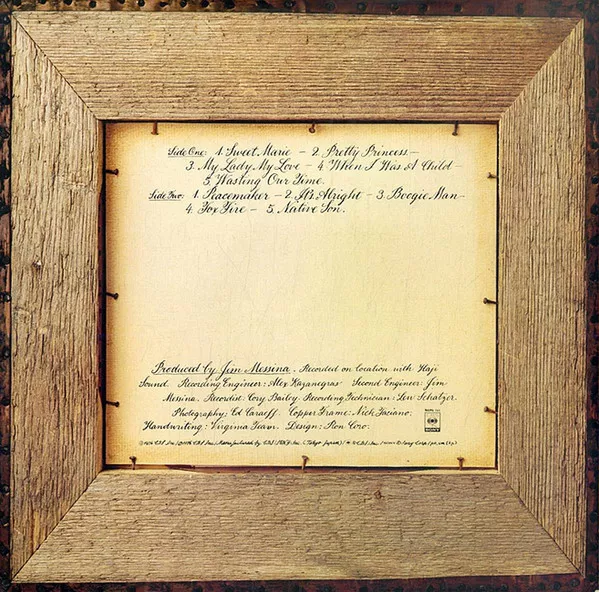 Side One: 1. Sweet Marie — 2. Pretty Princess —
3. My Lady, My Love — 4. When I Was A Child
5. Wasting Our Time.
Side Two: 1. Peacemaker — 2. It's Alright — 3. Boogie Man —
4. Fox Fire — 5. Native Son.
Produced by Jim Messina. Recorded on location with Haji
Sound. Recording Engineer: Alex Kazanegras Second Engineer: Jim
Messina. Recordist: Cory Bailey. Recording Technician: Lew Schatzer.
Photography: Ed Caraeff. Copper Frame: Nick Faciano.
Handwriting: Virginia Team. Design: Ron Coro.
SONY